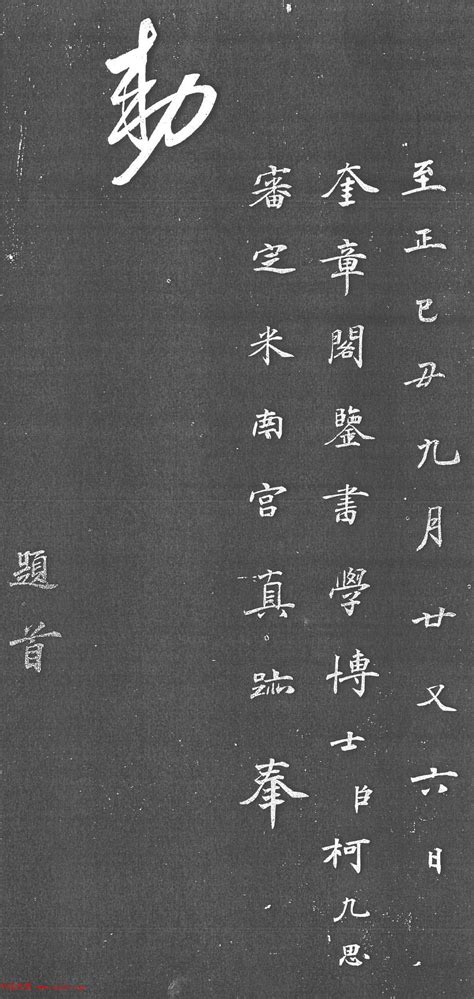 至正巳丑九月廿又六日
奎章閣鑒書學博士臣柯九思
審定米南宫真跡奉
勅
題首